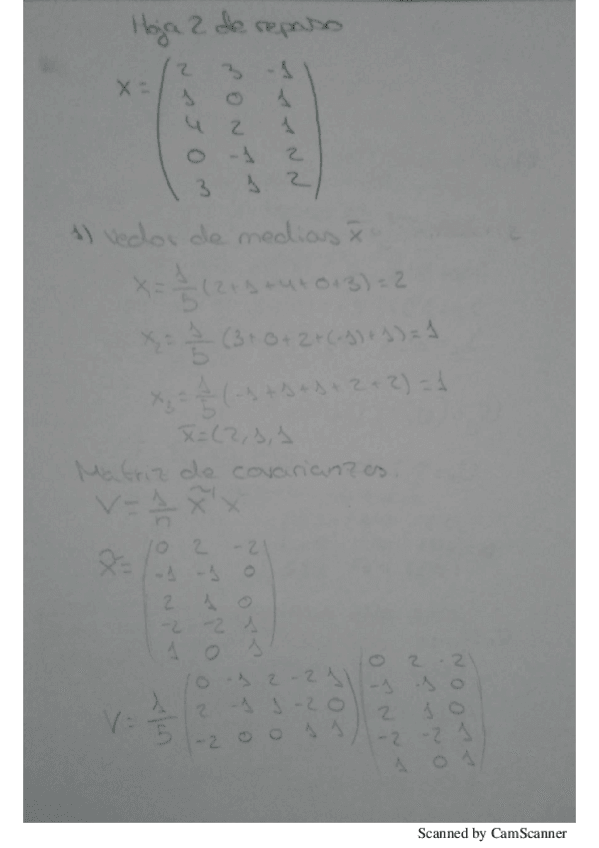 Hoja 2 de repaso
X = (2 3 -1
1 0 1
4 2 1
0 -1 2
3 1 2)
1) Vector de medias x̄
x₁ = 1/5 (2+1+4+0+3) = 2
x₂ = 1/5 (3+0+2+(-1)+1) = 1
x₃ = 1/5 (-1+1+1+2+2) = 1
x̄ = (2,1,1
Matriz de covarianzas.
V = 1/n X̃' X
X̃ = (0 2 -2
-1 -1 0
2 1 0
-2 -2 1
1 0 1)
V = 1/5 (0 -1 2 -2 1
2 -1 1 -2 0
-2 0 0 1 1) (0 2 -2
-1 -1 0
2 1 0
-2 -2 1
1 0 1)
Scanned by CamScanner